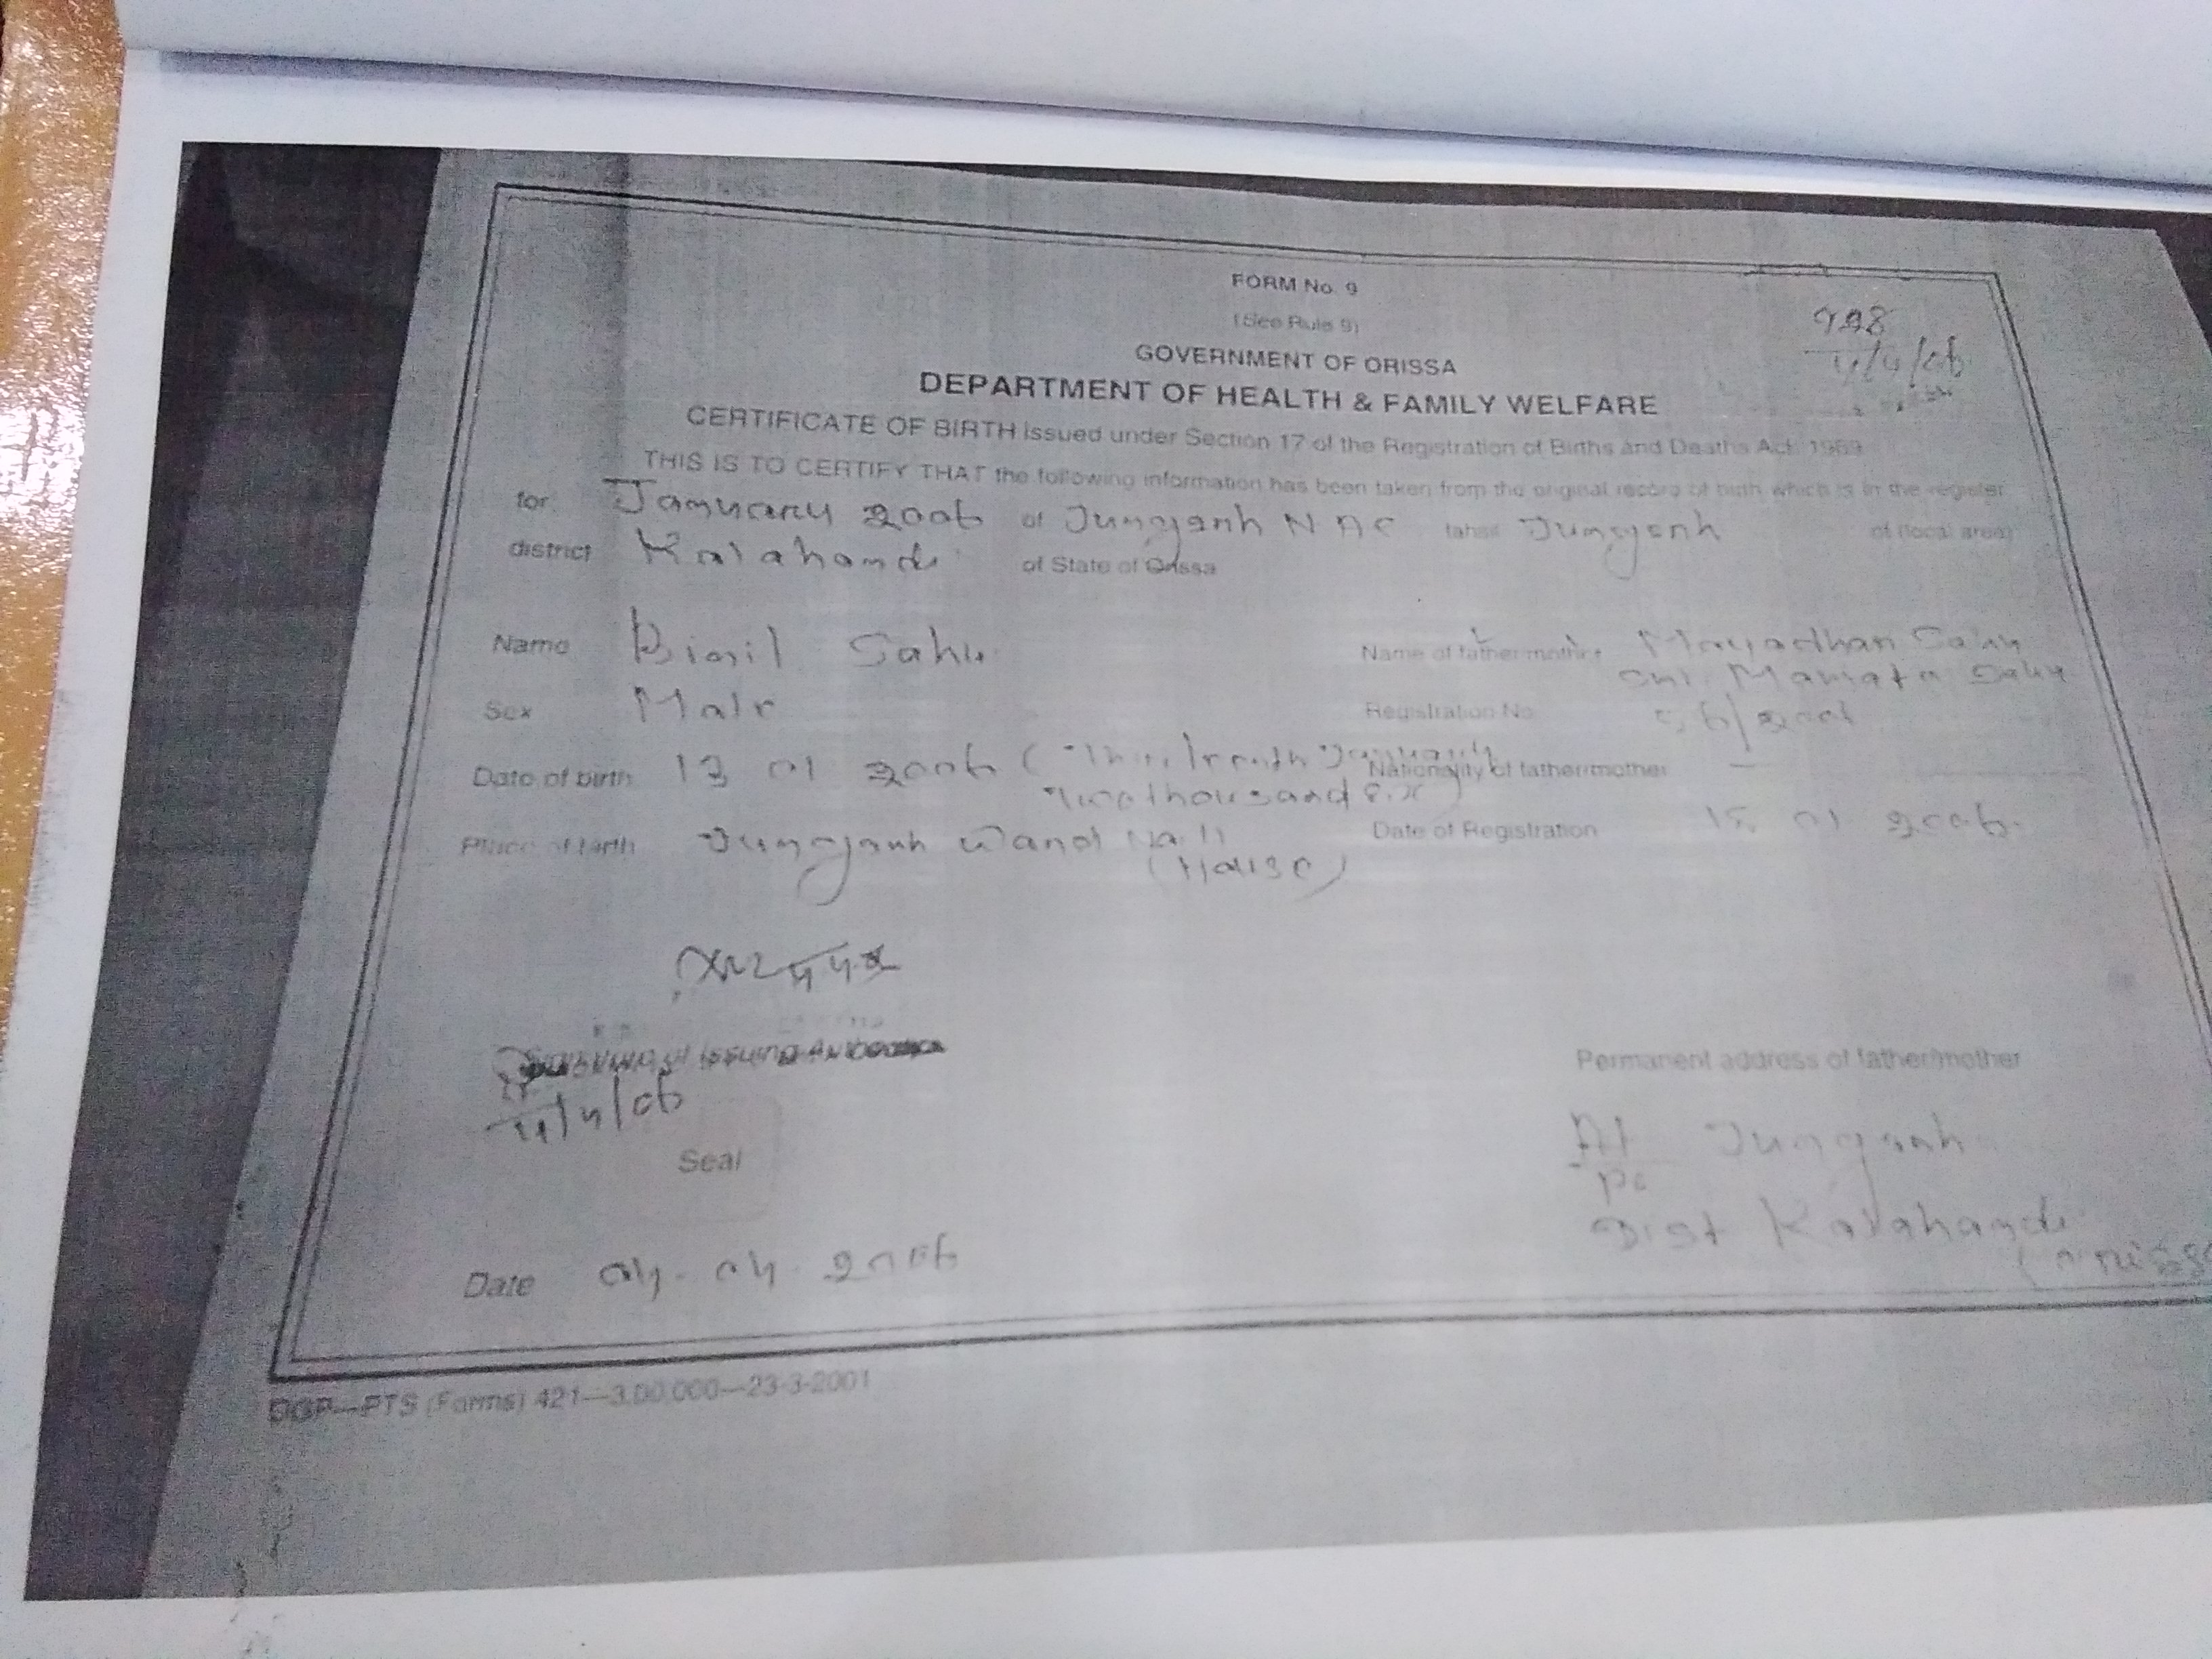 FORM No. 9
(See Rule 9)
GOVERNMENT OF ORISSA
DEPARTMENT OF HEALTH & FAMILY WELFARE
CERTIFICATE OF BIRTH issued under Section 17 of the Registration of Births and Deaths Act 1969
THIS IS TO CERTIFY THAT the following information has been taken from the original record of birth which is in the register
for January 2006 of Junagarh NAC tahsil Junagarh of (local area)
district Kalahandi of State of Orissa
Name Sahu Name of father/mother Sahu
Sahu
Sex Male Registration No.
Date of birth 13 01 2006 (Thirteenth January Nationality of father/mother —
Two thousand six)
Place of birth Junagarh Ward No. 11 Date of Registration 01 2006
(House)
Signature of Issuing Authority
Permanent address of father/mother
4/06
Seal
At Junagarh
Po
Dist Kalahandi
Date 04.04.2006
(Orissa
OGP—PTS (Forms) 421—3,00,000—23-3-2001